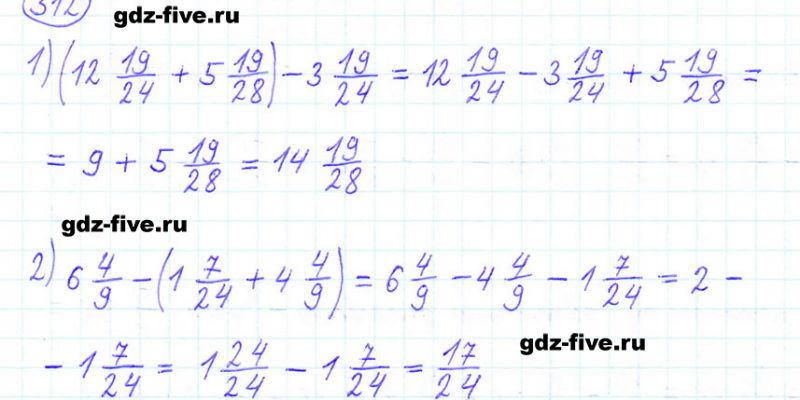 312
gdz-five.ru
1) (12 19/24 + 5 19/28) - 3 19/24 = 12 19/24 - 3 19/24 + 5 19/28 =
= 9 + 5 19/28 = 14 19/28
gdz-five.ru
2) 6 4/9 - (1 7/24 + 4 4/9) = 6 4/9 - 4 4/9 - 1 7/24 = 2 -
- 1 7/24 = 1 24/24 - 1 7/24 = 17/24
gdz-five.ru